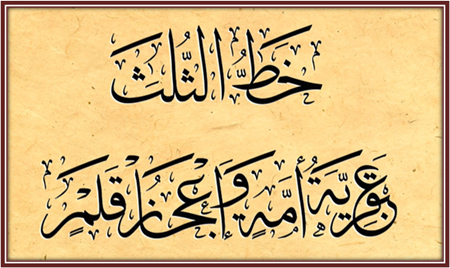 خَطُّ الثُّلث
عبقريَّة أمَّةٍ وَإعجَاز قَلَم